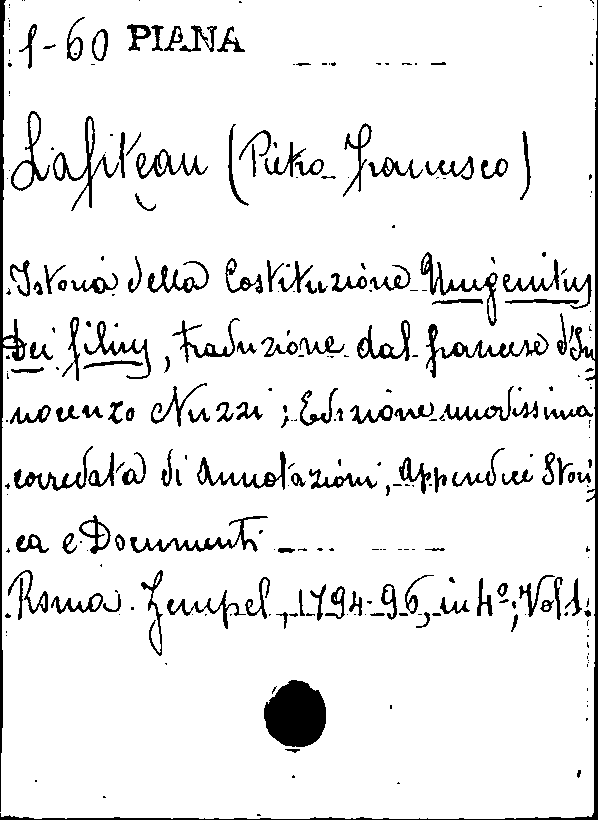 1-60 PIANA
Lafiteau (Pietro Francesco)
Istoria della Costituzione Unigenitus
Dei filius, traduzione dal francese d'In=
nocenzo Nuzzi; Edizione nuovissima
corredata di Annotazioni, Appendici Stori=
ca e Documenti
Roma. Zempel, 1794-96, in 4º; Vol 1.